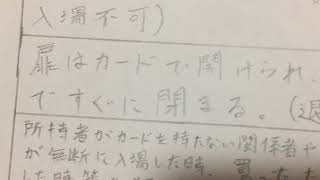 入場不可)
扉はカードで開けられ、
ですぐに閉まる。(退
所持者がカードを持たない関係者や
が無断に入場した時、買った
した時